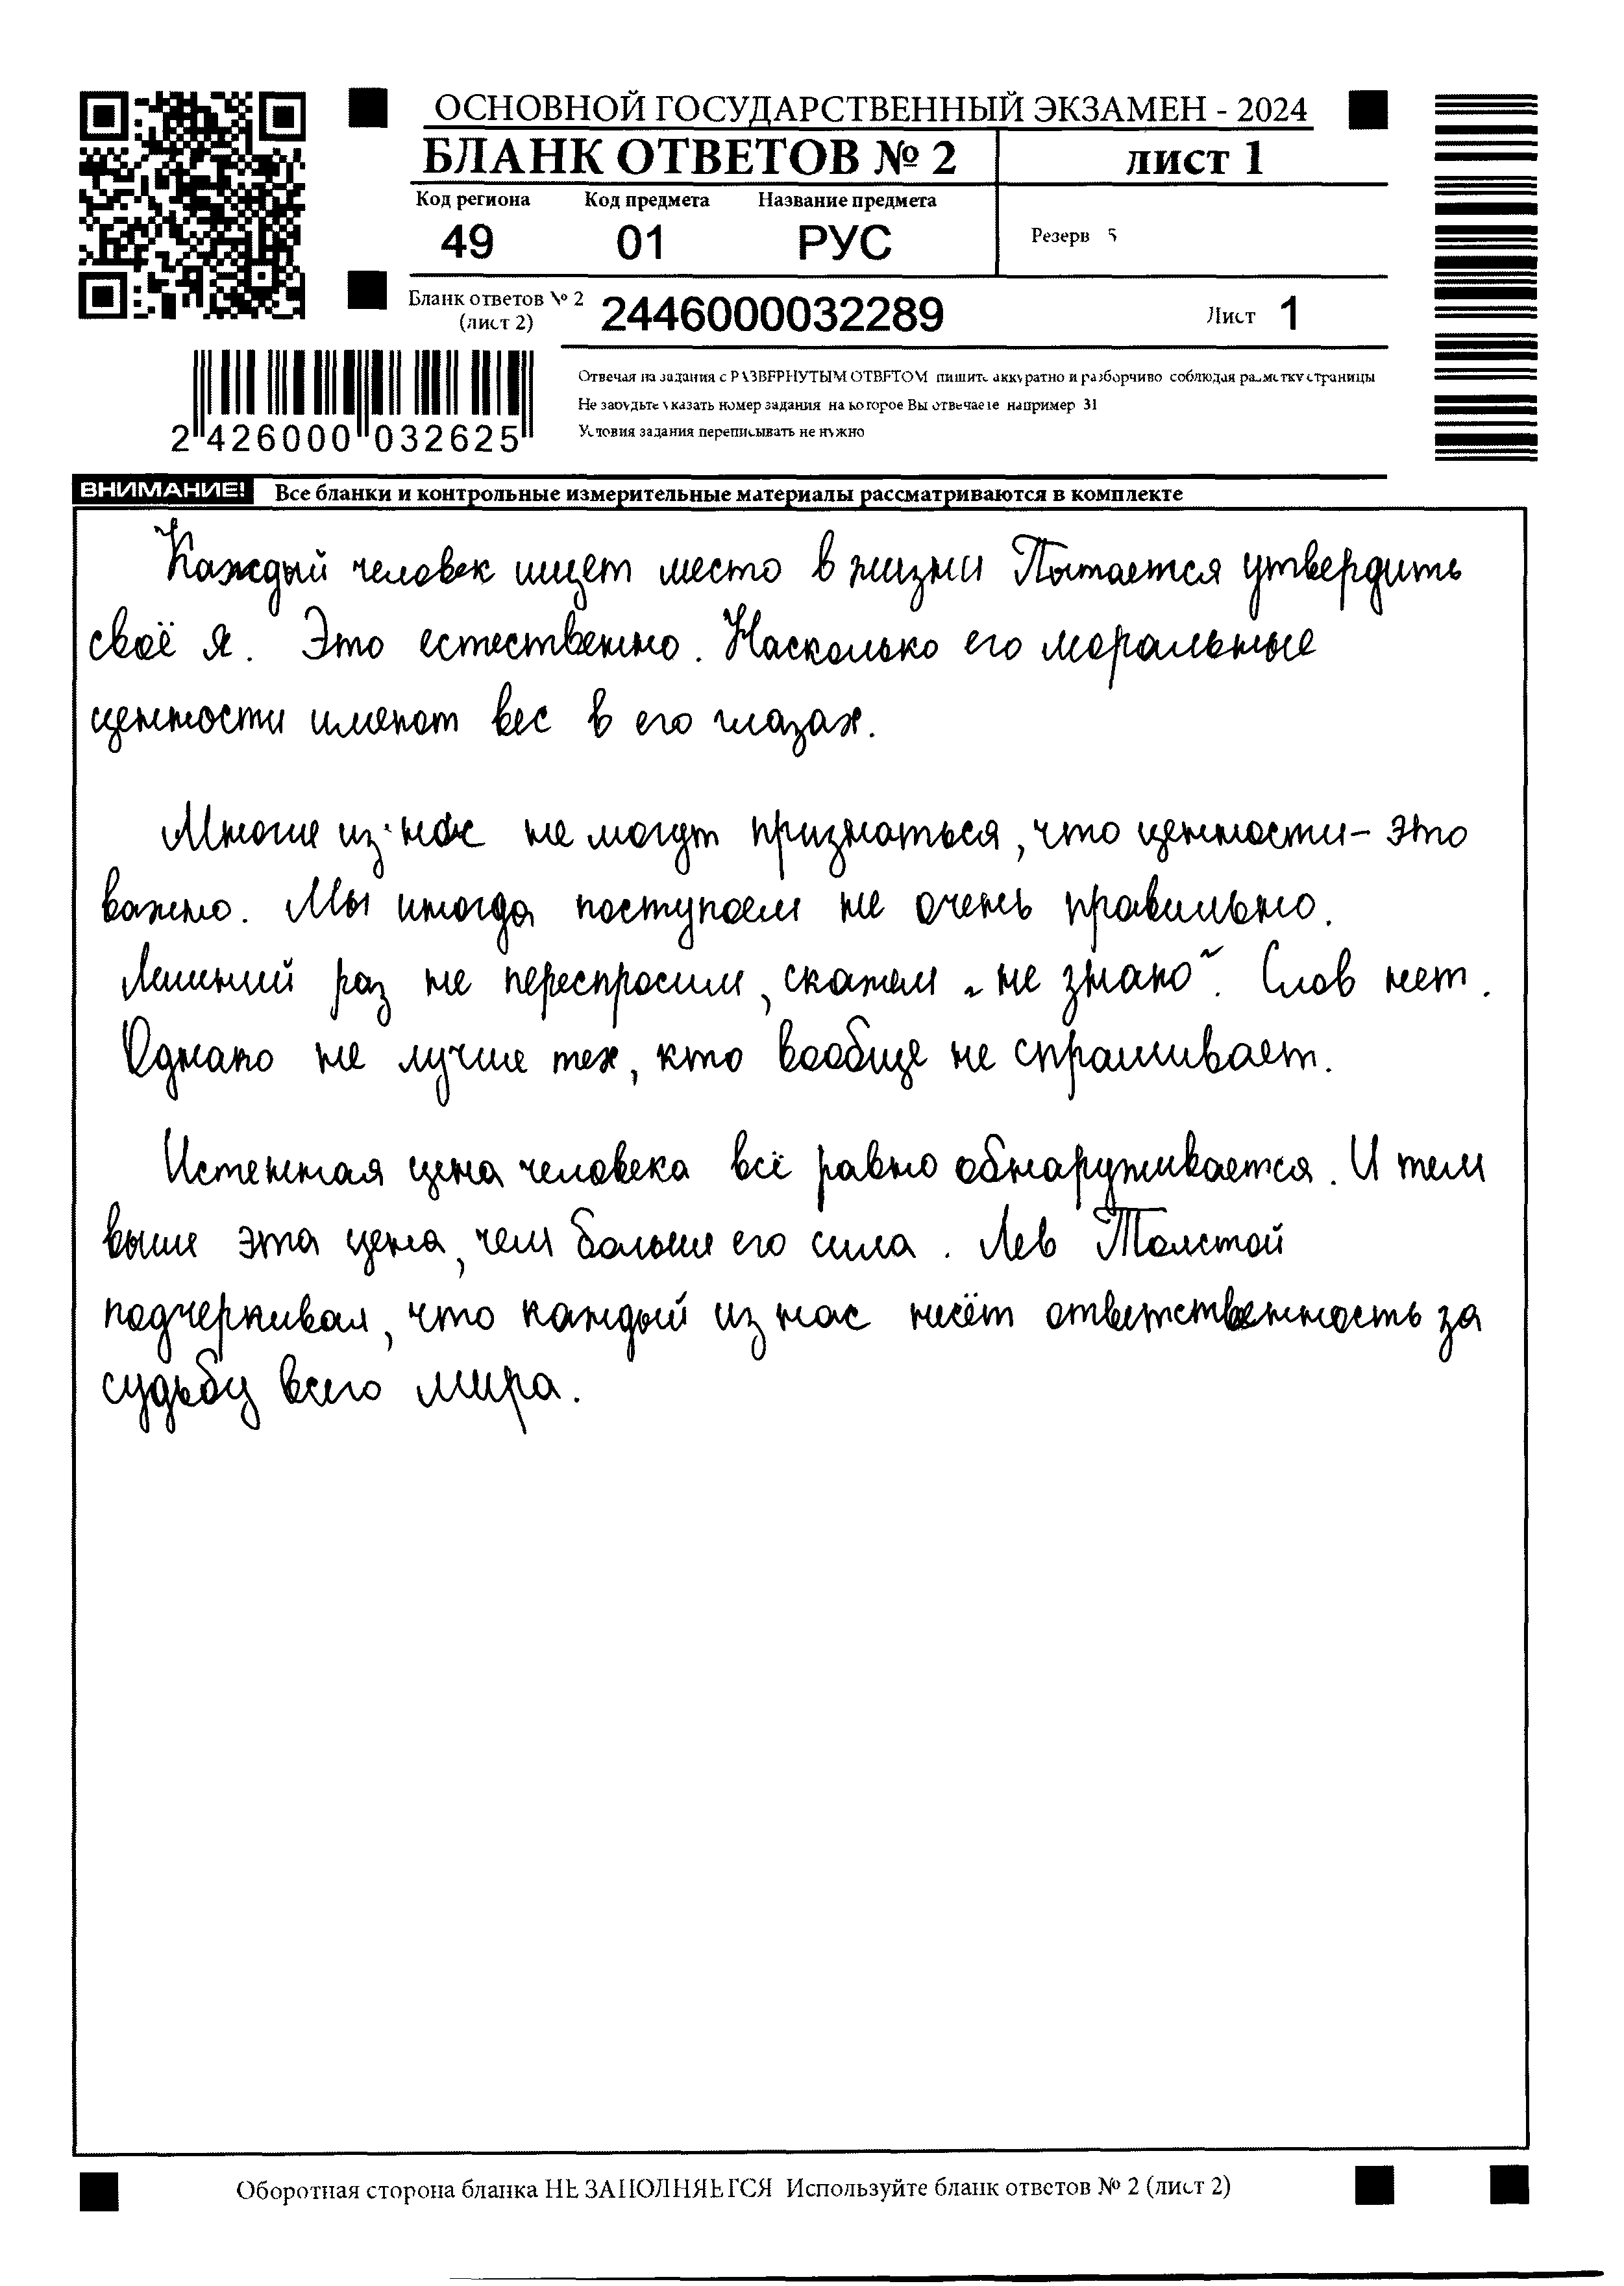 ОСНОВНОЙ ГОСУДАРСТВЕННЫЙ ЭКЗАМЕН - 2024
БЛАНК ОТВЕТОВ № 2
лист 1
Код региона Код предмета Название предмета
49 01 РУС
Резерв 5
Бланк ответов № 2
(лист 2)
2446000032289
Лист 1
Отвечая на задания с РАЗВЕРНУТЫМ ОТВЕТОМ пишите аккуратно и разборчиво соблюдая разметку страницы
Не забудьте указать номер задания на которое Вы отвечаете например 31
Условия задания переписывать не нужно
2 426000 032625
ВНИМАНИЕ! Все бланки и контрольные измерительные материалы рассматриваются в комплекте
Каждый человек ищет место в жизни Пытается утвердить
своё я. Это естественно. Насколько его моральные
ценности имеют вес в его глазах.
Многие из нас не могут признаться, что ценности – это
важно. Мы иногда поступаем не очень правильно.
Лишний раз не переспросим, скажем „не знаю". Слов нет.
Однако не лучше тех, кто вообще не спрашивает.
Истенная цена человека всё равно обнаруживается. И тем
выше эта цена, чем больше его сила. Лев Толстой
подчеркивал, что каждый из нас несёт ответственность за
судьбу всего мира.
Оборотная сторона бланка НЕ ЗАПОЛНЯЕТСЯ Используйте бланк ответов № 2 (лист 2)